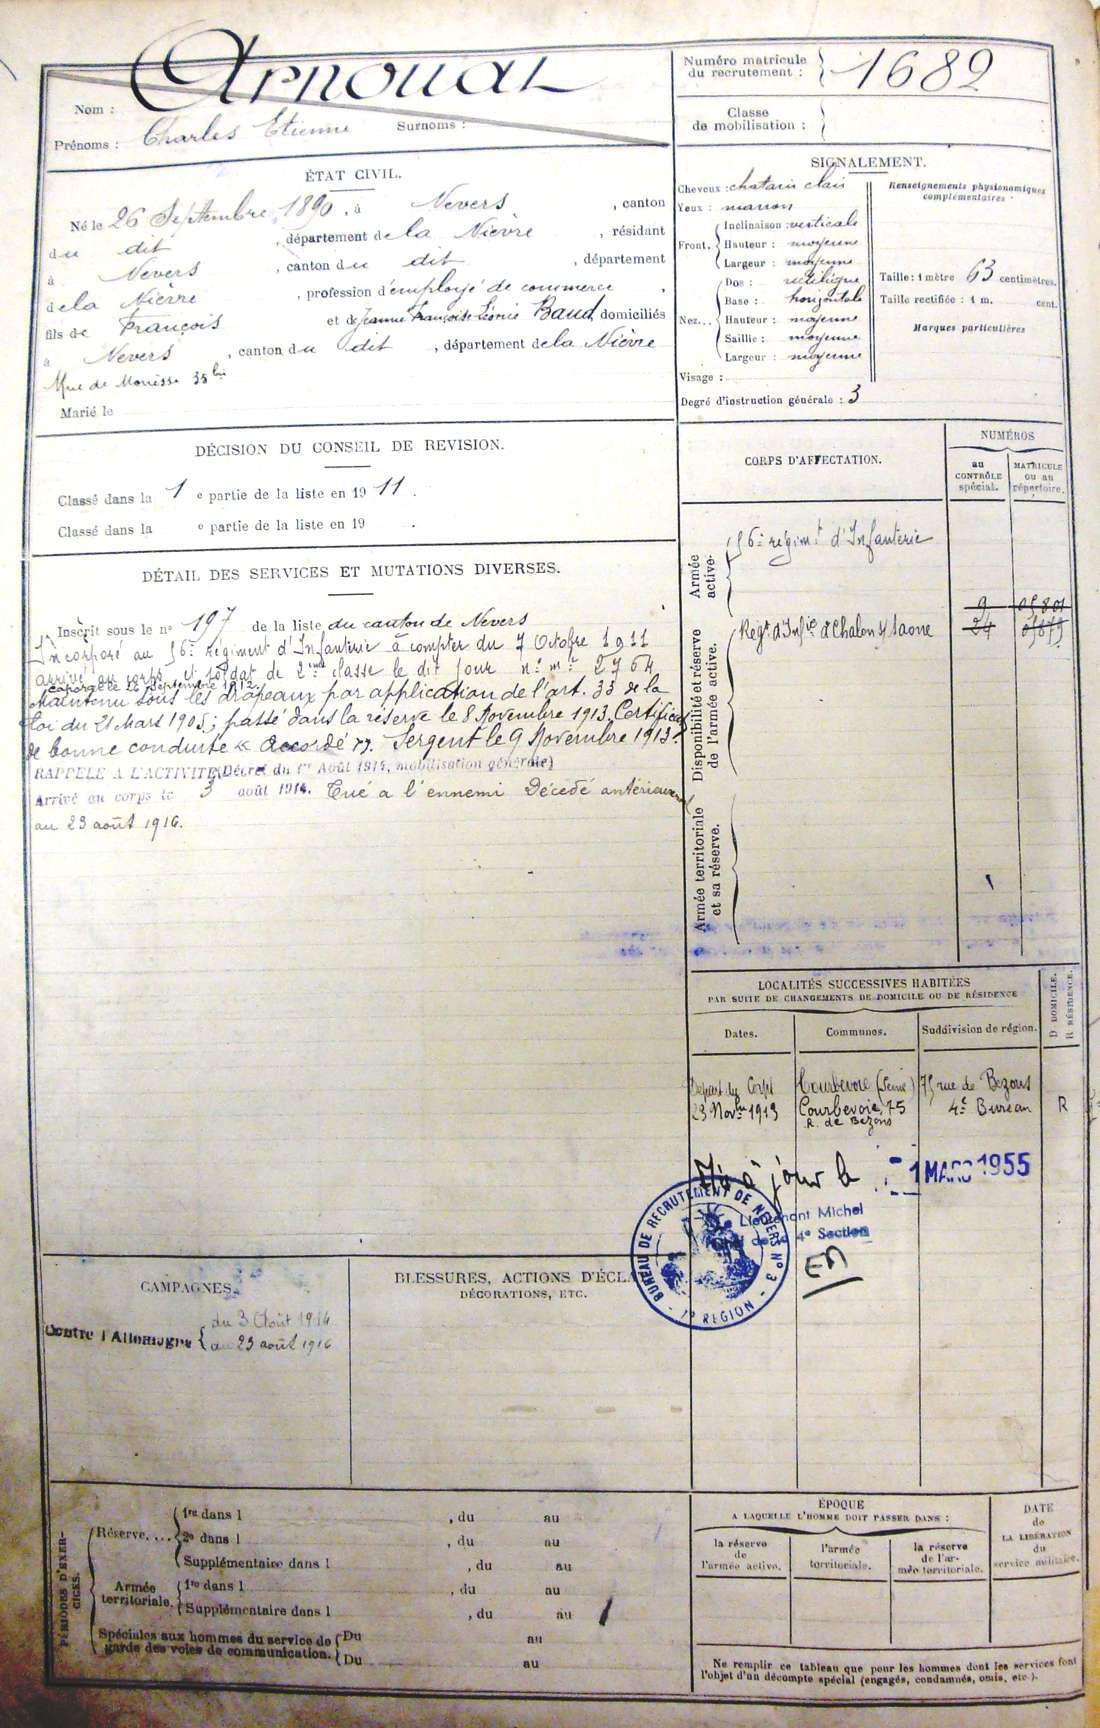 Nom : Arnoual
Prénoms : Charles Etienne Surnoms :
Numéro matricule
du recrutement : 1682
Classe
de mobilisation :
ÉTAT CIVIL.
Né le 26 Septembre 1890, à Nevers, canton
du dit, département de la Nièvre, résidant
à Nevers, canton du dit, département
de la Nièvre, profession d'employé de commerce,
fils de François et de Jeanne Françoise Léonie Baud, domiciliés
à Nevers, canton du dit, département de la Nièvre
Rue de Mouësse 35 bis
Marié le
SIGNALEMENT.
Cheveux : chatain clair
Yeux : marron
Front. Inclinaison : verticale
Hauteur : moyenne
Largeur : moyenne
Nez... Dos : rectiligne
Base : horizontale
Hauteur : moyenne
Saillie : moyenne
Largeur : moyenne
Visage :
Degré d'instruction générale : 3
Renseignements physionomiques
complémentaires
Taille : 1 mètre 63 centimètres.
Taille rectifiée : 1 m. cent.
Marques particulières
DÉCISION DU CONSEIL DE REVISION.
Classé dans la 1 e partie de la liste en 1911.
Classé dans la e partie de la liste en 19 .
DÉTAIL DES SERVICES ET MUTATIONS DIVERSES.
Inscrit sous le n° 197 de la liste du canton de Nevers
Incorporé au 56e régiment d'Infanterie à compter du 7 Octobre 1911
arrivé au corps et soldat de 2me classe le dit jour n° mle 2764
Caporal le 26 Septembre 1912
Maintenu sous les drapeaux par application de l'art. 33 de la
Loi du 21 Mars 1905; passé dans la réserve le 8 Novembre 1913. Certificat
de bonne conduite « Accordé ». Sergent le 9 Novembre 1913.
RAPPELÉ A L'ACTIVITÉ (Décret du 1er Août 1914, mobilisation générale)
Arrivé au corps le 3 août 1914. Tué a l'ennemi Décédé antérieurement
au 23 août 1916.
CORPS D'AFFECTATION.
NUMÉROS
au
CONTRÔLE
spécial.
MATRICULE
ou au
répertoire.
Armée
active.
56e régimt d'Infanterie
Disponibilité et réserve
de l'armée active.
9
24
Regt d'Infie d'Chalon s/ Saone
Armée territoriale
et sa réserve.
LOCALITÉS SUCCESSIVES HABITÉES
PAR SUITE DE CHANGEMENTS DE DOMICILE OU DE RÉSIDENCE
Dates.
Communes.
Subdivision de région.
D DOMICILE.
R RÉSIDENCE.
Depart du Corps Courbevoie (Seine) 75 rue de Bezons
23 Novbre 1913 Courbevoie, 75 4e Bureau R
R. de Bezons
Mis à jour le 1 MARS 1955
Lieutenant Michel
Chef de la 4e Section
BUREAU DE RECRUTEMENT DE NEVERS N° 3
1e RÉGION
CAMPAGNES.
Contre l'Allemagne du 3 Août 1914
au 23 août 1916
BLESSURES, ACTIONS D'ÉCLA
DÉCORATIONS, ETC.
PÉRIODES D'EXER-
CICES.
Réserve.... 1re dans l , du au
2e dans l , du au
Supplémentaire dans l , du au
Armée
territoriale. 1re dans l , du au
Supplémentaire dans l , du au
Spéciales aux hommes du service de
garde des voies de communication. Du au
Du au
ÉPOQUE
A LAQUELLE L'HOMME DOIT PASSER DANS :
la réserve
de
l'armée active.
l'armée
territoriale.
la réserve
de l'ar-
mée territoriale.
DATE
de
LA LIBÉRATION
du
service militaire.
Ne remplir ce tableau que pour les hommes dont les services font
l'objet d'un décompte spécial (engagés, condamnés, omis, etc.).